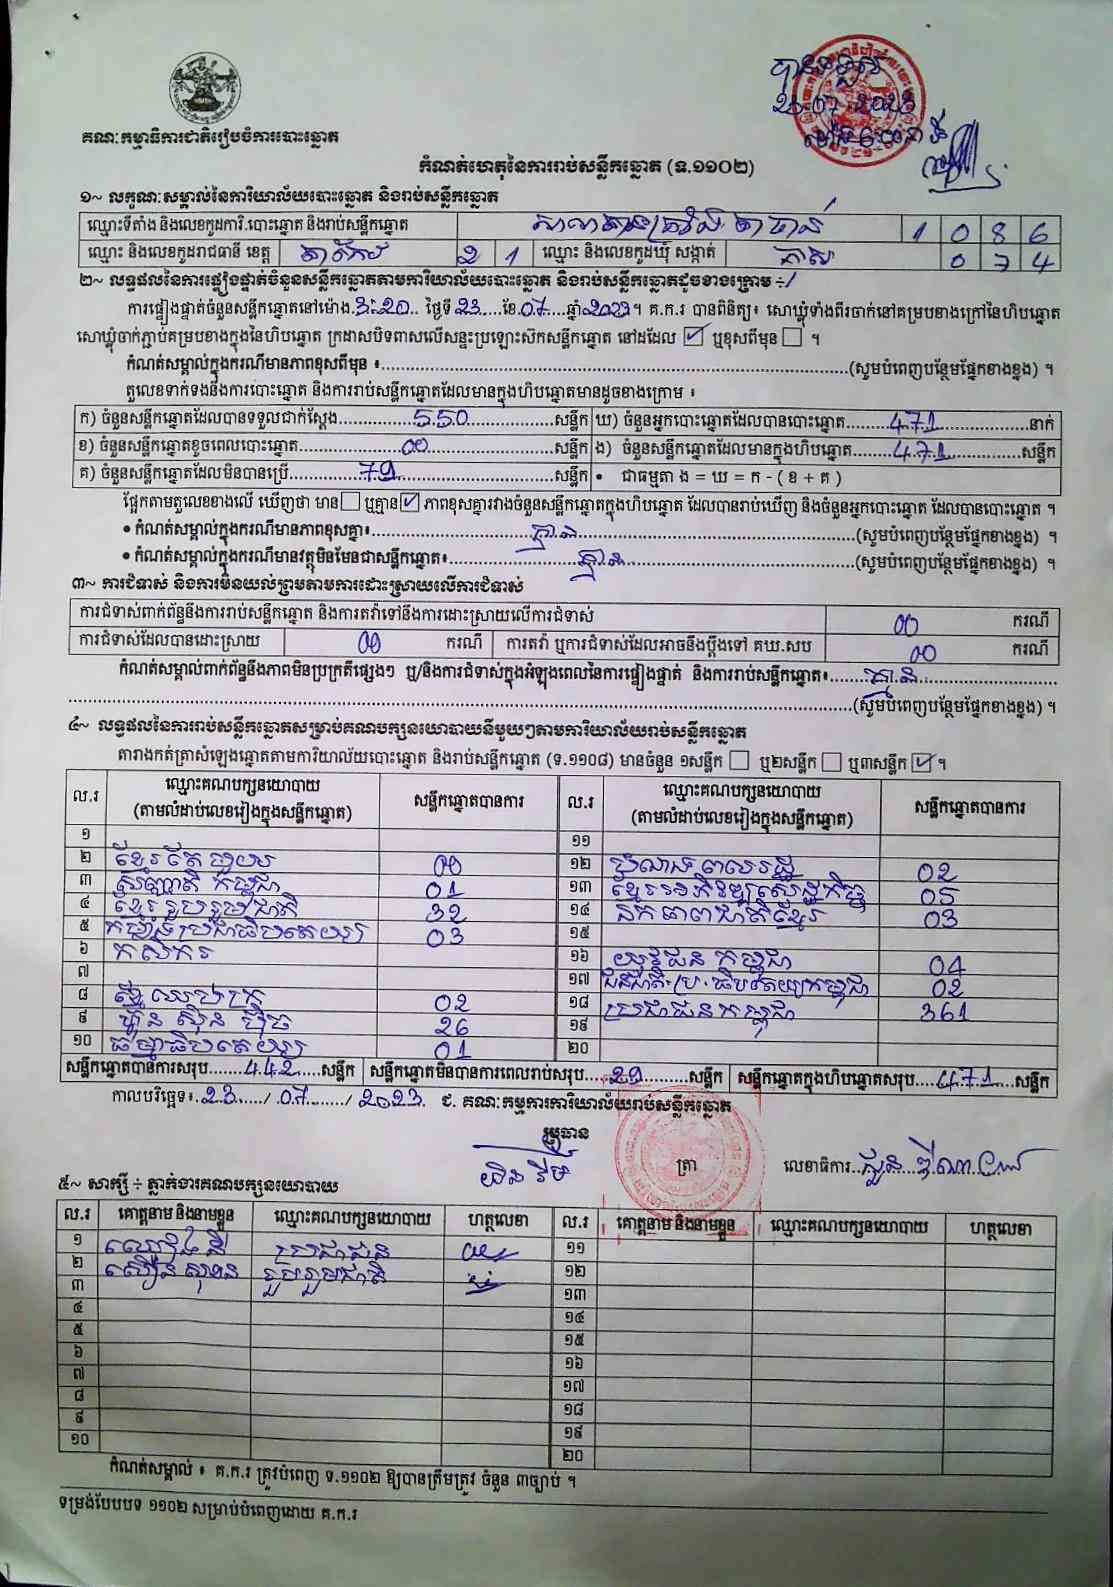 គណៈកម្មាធិការជាតិរៀបចំការបោះឆ្នោត
បានទទួល
23-07-2023
កំណត់ហេតុនៃការរាប់សន្លឹកឆ្នោត (ទ.១១០២)
១~ លក្ខណៈសម្គាល់នៃការិយាល័យបោះឆ្នោត និងរាប់សន្លឹកឆ្នោត
ឈ្មោះទីតាំង និងលេខកូដការិ.បោះឆ្នោត និងរាប់សន្លឹកឆ្នោត 1 0 8 6
ឈ្មោះ និងលេខកូដរាជធានី ខេត្ត តាកែវ 2 1 ឈ្មោះ និងលេខកូដឃុំ សង្កាត់ 0 7 4
២~ លទ្ធផលនៃការផ្ទៀងផ្ទាត់ចំនួនសន្លឹកឆ្នោតតាមការិយាល័យបោះឆ្នោត និងរាប់សន្លឹកឆ្នោតដូចខាងក្រោម ÷
ការផ្ទៀងផ្ទាត់ចំនួនសន្លឹកឆ្នោតនៅម៉ោង.3:20.. ថ្ងៃទី.23....ខែ.07....ឆ្នាំ2023។ គ.ក.រ បានពិនិត្យ៖ សោឃ្លុំទាំងពីរចាក់នៅគម្របខាងក្រៅនៃហិបឆ្នោត
សោឃ្លុំចាក់ភ្ជាប់គម្របខាងក្នុងនៃហិបឆ្នោត ក្រដាសបិទពាសលើសន្ទះប្រឡោះស៊កសន្លឹកឆ្នោត នៅដដែល ☑ ឬខុសពីមុន ☐ ។
កំណត់សម្គាល់ក្នុងករណីមានភាពខុសពីមុន ៖..........(សូមបំពេញបន្ថែមផ្នែកខាងខ្នង) ។
តួលេខទាក់ទងនឹងការបោះឆ្នោត និងការរាប់សន្លឹកឆ្នោតដែលមានក្នុងហិបឆ្នោតមានដូចខាងក្រោម ៖
ក) ចំនួនសន្លឹកឆ្នោតដែលបានទទួលជាក់ស្តែង.....550.....សន្លឹក ឃ) ចំនួនអ្នកបោះឆ្នោតដែលបានបោះឆ្នោត.....471.....នាក់
ខ) ចំនួនសន្លឹកឆ្នោតខូចពេលបោះឆ្នោត.....00.....សន្លឹក ង) ចំនួនសន្លឹកឆ្នោតដែលមានក្នុងហិបឆ្នោត.....471.....សន្លឹក
គ) ចំនួនសន្លឹកឆ្នោតដែលមិនបានប្រើ.....79.....សន្លឹក • ជាធម្មតា ង = ឃ = ក - ( ខ + គ )
ផ្អែកតាមតួលេខខាងលើ ឃើញថា មាន ☐ ឬគ្មាន ☑ ភាពខុសគ្នារវាងចំនួនសន្លឹកឆ្នោតក្នុងហិបឆ្នោត ដែលបានរាប់ឃើញ និងចំនួនអ្នកបោះឆ្នោត ដែលបានបោះឆ្នោត ។
• កំណត់សម្គាល់ក្នុងករណីមានភាពខុសគ្នា៖.....គ្មាន.....(សូមបំពេញបន្ថែមផ្នែកខាងខ្នង) ។
• កំណត់សម្គាល់ក្នុងករណីមានវត្ថុមិនមែនជាសន្លឹកឆ្នោត៖.....គ្មាន.....(សូមបំពេញបន្ថែមផ្នែកខាងខ្នង) ។
៣~ ការជំទាស់ និងការមិនយល់ព្រមតាមការដោះស្រាយលើការជំទាស់
ការជំទាស់ពាក់ព័ន្ធនឹងការរាប់សន្លឹកឆ្នោត និងការតវ៉ាទៅនឹងការដោះស្រាយលើការជំទាស់ 00 ករណី
ការជំទាស់ដែលបានដោះស្រាយ 00 ករណី ការតវ៉ា ឬការជំទាស់ដែលអាចនឹងប្តឹងទៅ គឃ.សប 00 ករណី
កំណត់សម្គាល់ពាក់ព័ន្ធនឹងភាពមិនប្រក្រតីផ្សេងៗ ឬ/និងការជំទាស់ក្នុងអំឡុងពេលនៃការផ្ទៀងផ្ទាត់ និងការរាប់សន្លឹកឆ្នោត៖.....គ្មាន.....
..........(សូមបំពេញបន្ថែមផ្នែកខាងខ្នង) ។
៤~ លទ្ធផលនៃការរាប់សន្លឹកឆ្នោតសម្រាប់គណបក្សនយោបាយនីមួយៗតាមការិយាល័យរាប់សន្លឹកឆ្នោត
តារាងកត់ត្រាសំឡេងឆ្នោតតាមការិយាល័យបោះឆ្នោត និងរាប់សន្លឹកឆ្នោត (ទ.១១០៨) មានចំនួន ១សន្លឹក ☐ ឬ២សន្លឹក ☐ ឬ៣សន្លឹក ☑ ។
ល.រ ឈ្មោះគណបក្សនយោបាយ (តាមលំដាប់លេខរៀងក្នុងសន្លឹកឆ្នោត) សន្លឹកឆ្នោតបានការ ល.រ ឈ្មោះគណបក្សនយោបាយ (តាមលំដាប់លេខរៀងក្នុងសន្លឹកឆ្នោត) សន្លឹកឆ្នោតបានការ
១ ១១
២ ខ្មែរតែមួយ 00 ១២ បំលាស់ 02
៣ ស្រលាញ់ជាតិ កម្ពុជា 01 ១៣ ខ្មែរអភិវឌ្ឍសេដ្ឋកិច្ច 05
៤ ខ្មែររួបរួមជាតិ 32 ១៤ ឯកភាពជាតិខ្មែរ 03
៥ កម្លាំងប្រជាធិបតេយ្យ 03 ១៥
៦ កសិករ ១៦ យុវជនកម្ពុជា 04
៧ ១៧ ជនជាតិ.ប្រ.ធិបតេយ្យកម្ពុជា 02
៨ ឃ្មុំ 02 ១៨ ប្រជាជនកម្ពុជា 361
៩ ហ្វ៊ុនស៊ិនប៉ិច 26 ១៩
១០ ធម្មាធិបតេយ្យ 01 ២០
សន្លឹកឆ្នោតបានការសរុប.....442.....សន្លឹក សន្លឹកឆ្នោតមិនបានការពេលរាប់សរុប.....29.....សន្លឹក សន្លឹកឆ្នោតក្នុងហិបឆ្នោតសរុប.....471.....សន្លឹក
កាលបរិច្ឆេទ៖.23...../ 07....../ 2023. ជ. គណៈកម្មការការិយាល័យរាប់សន្លឹកឆ្នោត
ប្រធាន
ត្រា លេខាធិការ
៥~ សាក្សី ÷ ភ្នាក់ងារគណបក្សនយោបាយ
ល.រ គោត្តនាម និងនាមខ្លួន ឈ្មោះគណបក្សនយោបាយ ហត្ថលេខា ល.រ គោត្តនាម និងនាមខ្លួន ឈ្មោះគណបក្សនយោបាយ ហត្ថលេខា
១ ប្រជាជន ១១
២ រួបរួមជាតិ ១២
៣ ១៣
៤ ១៤
៥ ១៥
៦ ១៦
៧ ១៧
៨ ១៨
៩ ១៩
១០ ២០
កំណត់សម្គាល់ ៖ គ.ក.រ ត្រូវបំពេញ ទ.១១០២ ឱ្យបានត្រឹមត្រូវ ចំនួន ៣ច្បាប់ ។
ទម្រង់បែបបទ ១១០២ សម្រាប់បំពេញដោយ គ.ក.រ